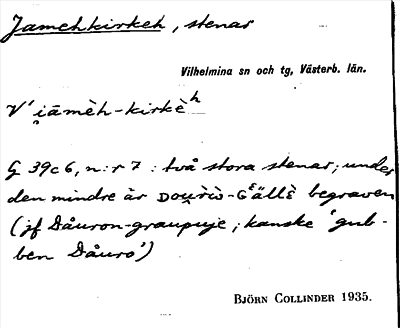 Jamehkirkeh, stenar
Vilhelmina sn och tg, Västerb. län.
V' i̯āmèh-kirkè h
G 39c6, n:r 7: två stora stenar; under
den mindre är Dou̯r̀ẁ-Gᴱällè begraven
(jf Dåuron-graupuje; kanske 'gub-
ben Dåuro')
BJÖRN COLLINDER 1935.